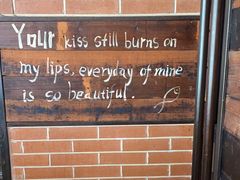 Your kiss still burns on
my lips, everyday of mine
is so beautiful.